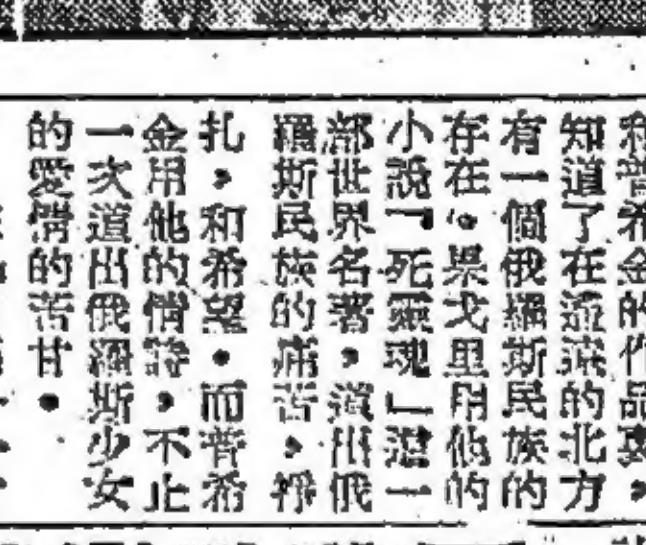 和普希金的作品裏，
知道了在遙遠的北方
有一個俄羅斯民族的
存在。果戈里用他的
小說「死靈魂」這一
部世界名著，道出俄
羅斯民族的痛苦，掙
扎，和希望。而普希
金用他的情詩，不止
一次道出俄羅斯少女
的愛情的苦甘。